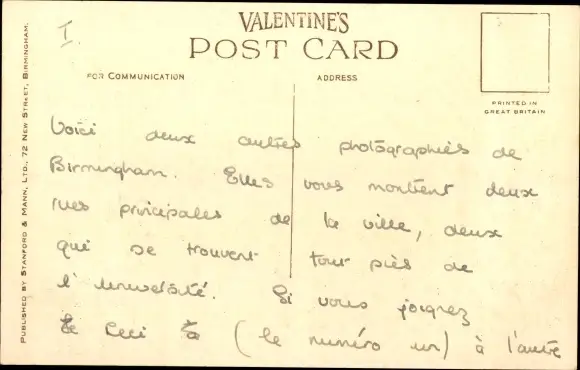 I.
VALENTINE'S
POST CARD
FOR COMMUNICATION
ADDRESS
PRINTED IN
GREAT BRITAIN
PUBLISHED BY STANFORD & MANN, LTD., 72 NEW STREET, BIRMINGHAM.
Voici deux autres photographiès de
Birmingham. Elles vous montrent deux
rues principales de la ville, deux
qui se trouvent tout près de
l'université. Si vous joignez
ceci (le numéro un) à l'autre